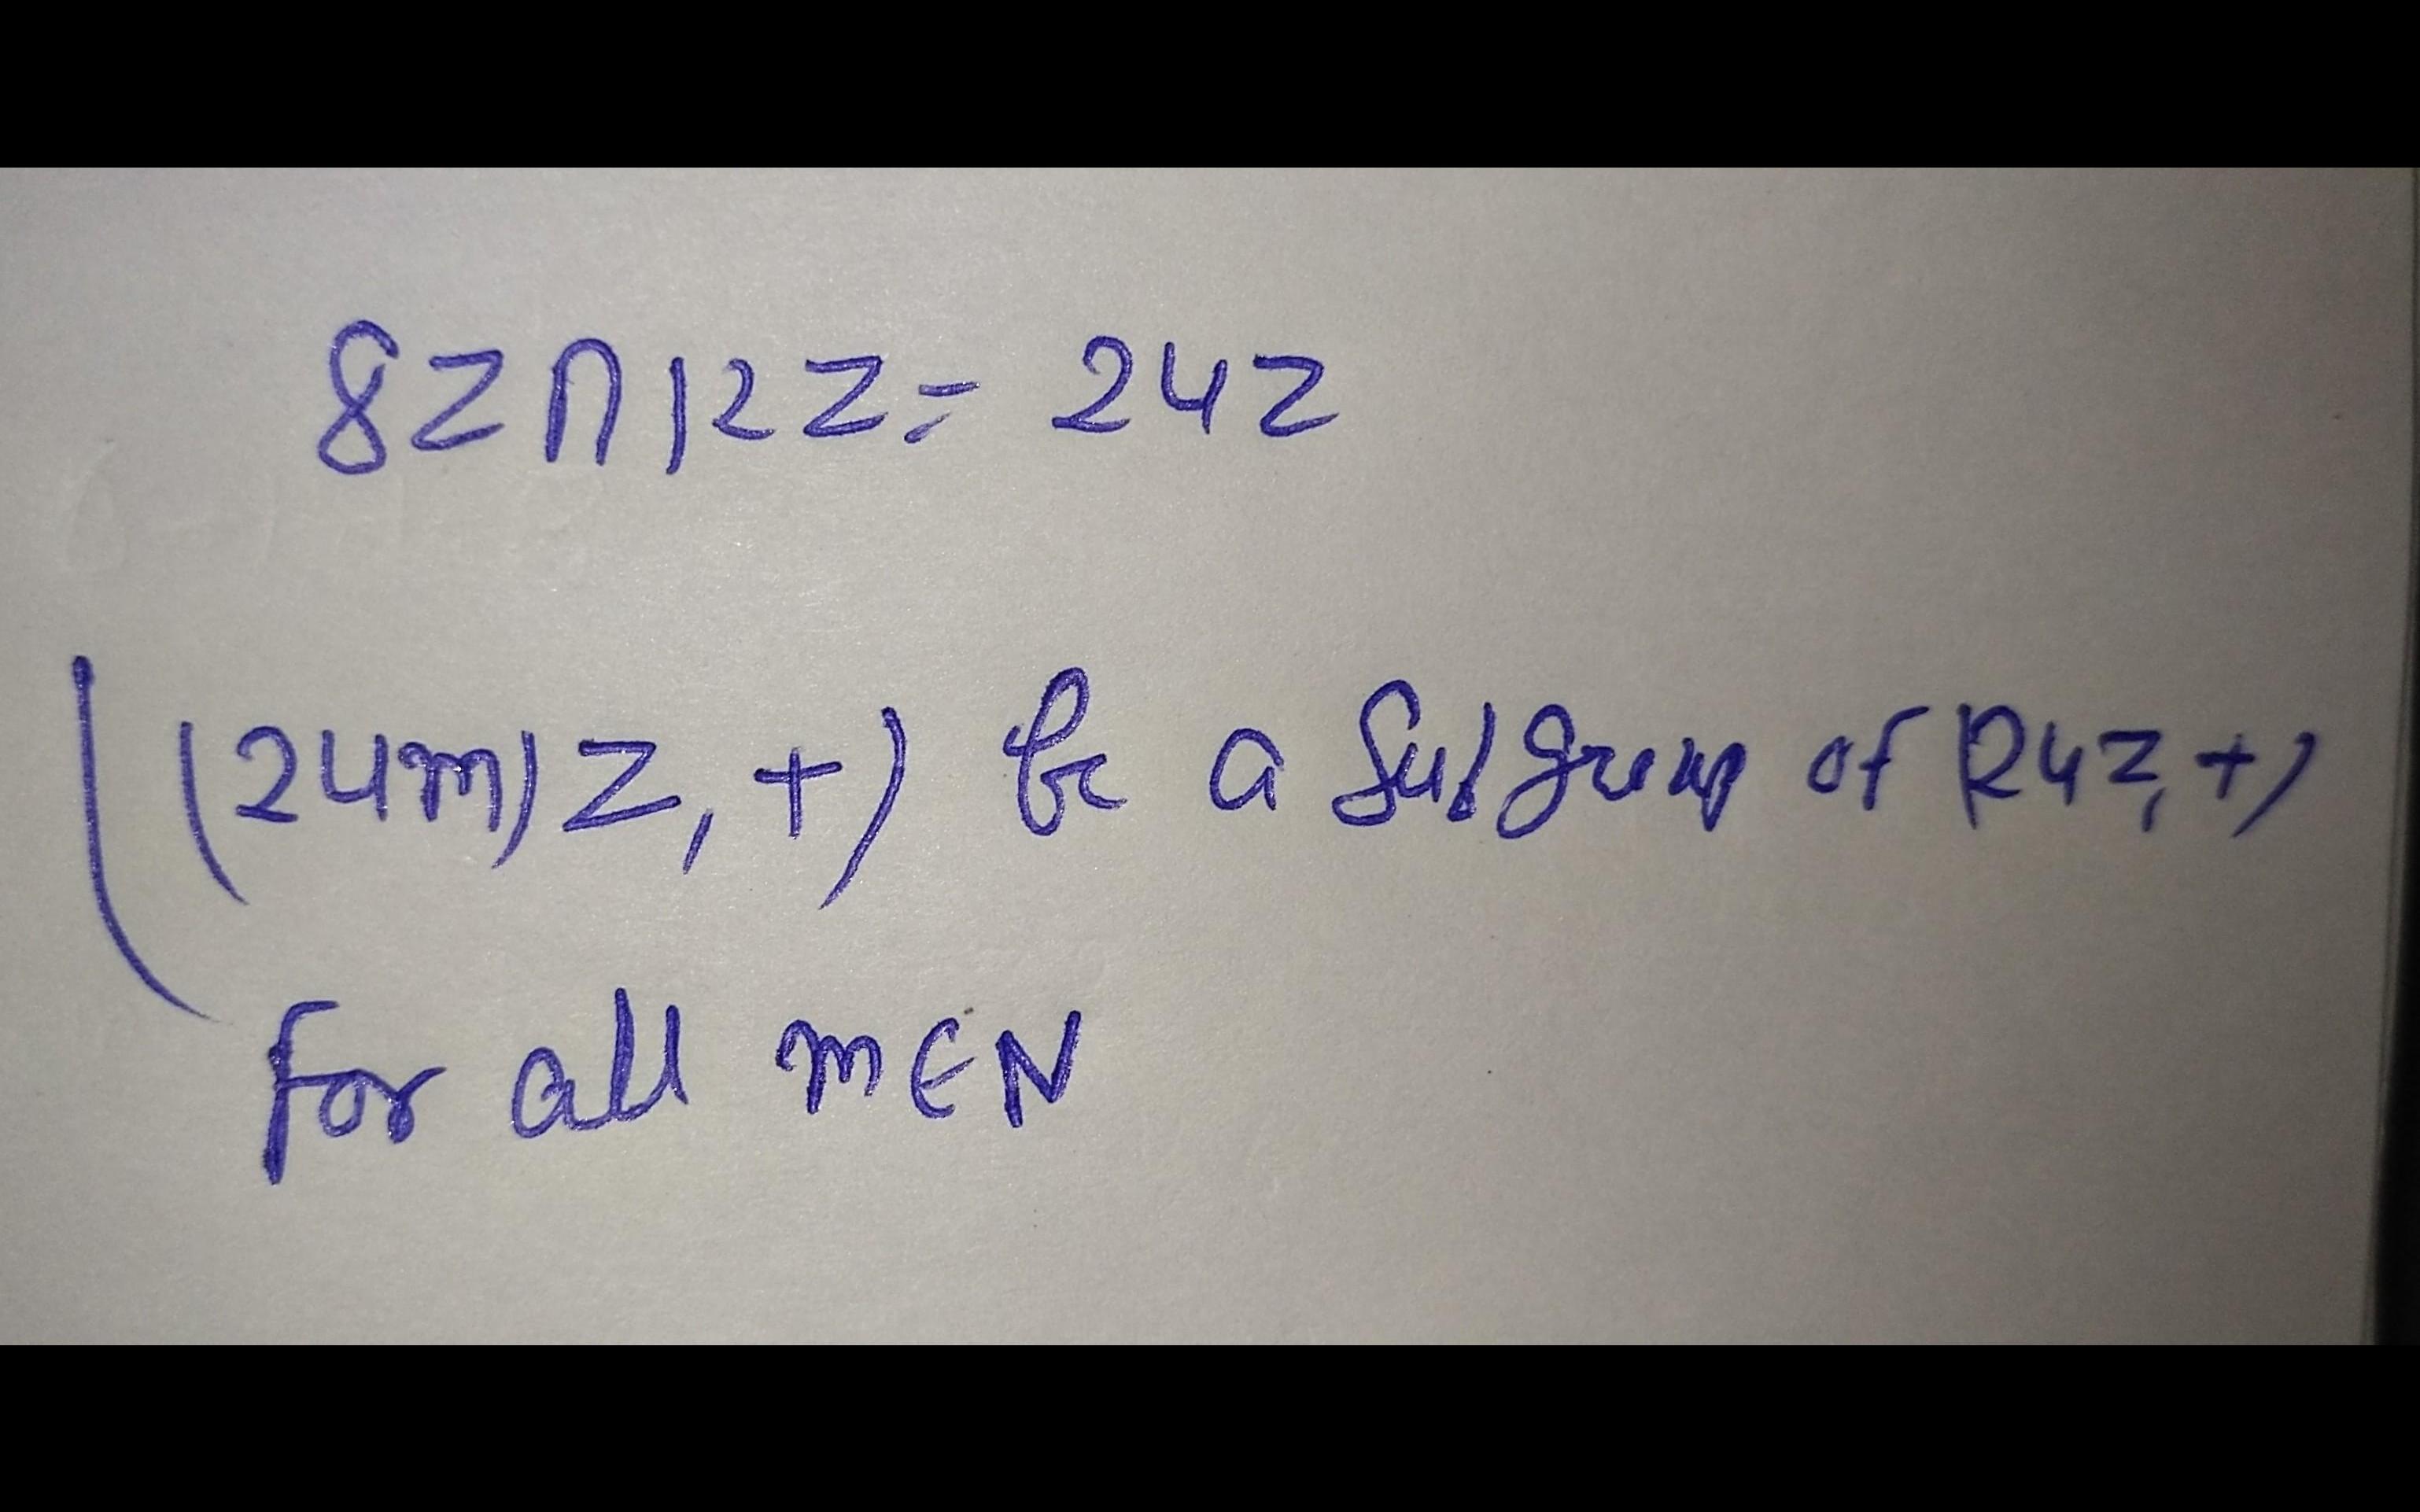 8Z∩12Z = 24Z
((24m)Z, +) be a subgroup of (24Z, +)
for all m∈N